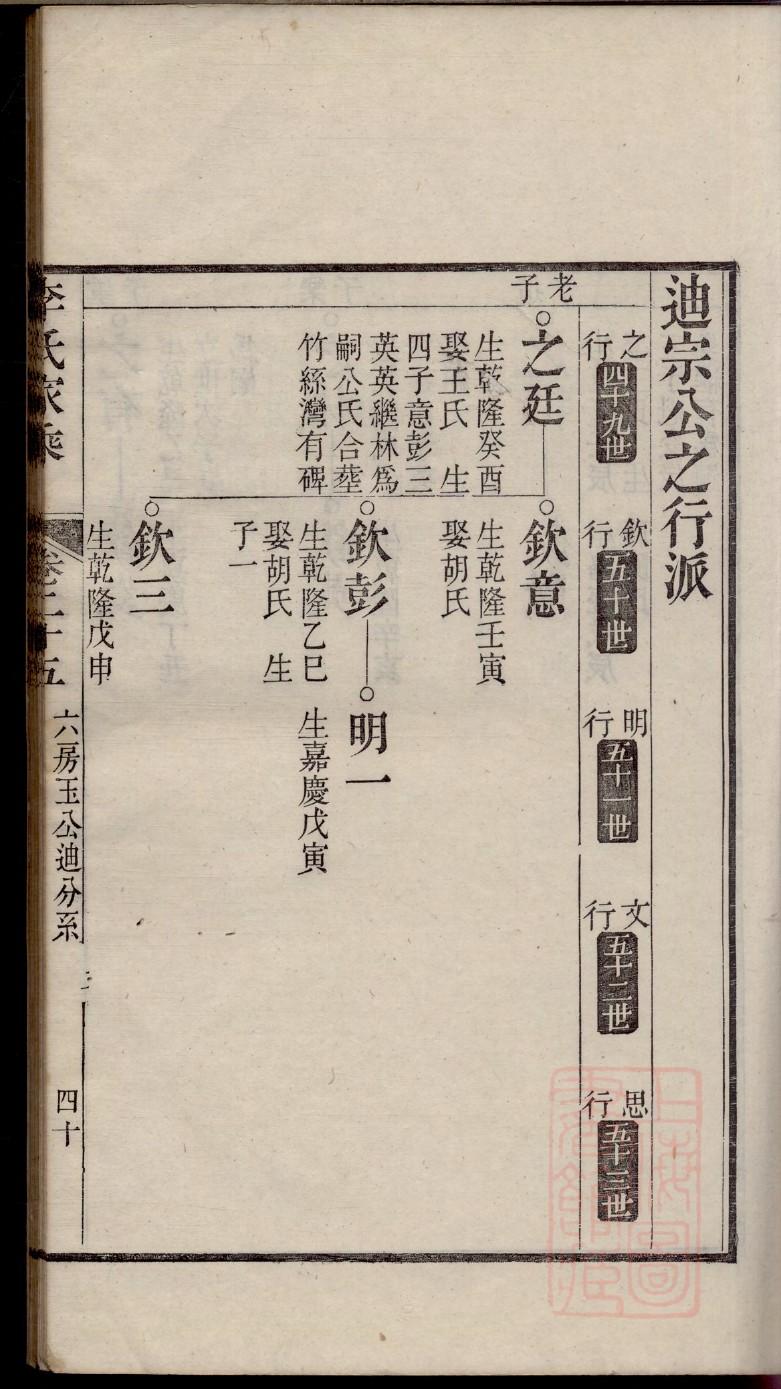 迪宗公之行派
之行
四十九世
欽行
五十世
明行
五十一世
文行
五十二世
思行
五十三世
老子
之廷
生乾隆癸酉
娶王氏　生
四子意彭三
英英繼林爲
嗣公氏合塟
竹絲灣有碑
欽意
生乾隆壬寅
娶胡氏
欽彭
生乾隆乙巳
娶胡氏　生
子一
明一
生嘉慶戊寅
欽三
生乾隆戊申
李氏家乘
卷二十五
六房玉公迪分系
四十
上海圖